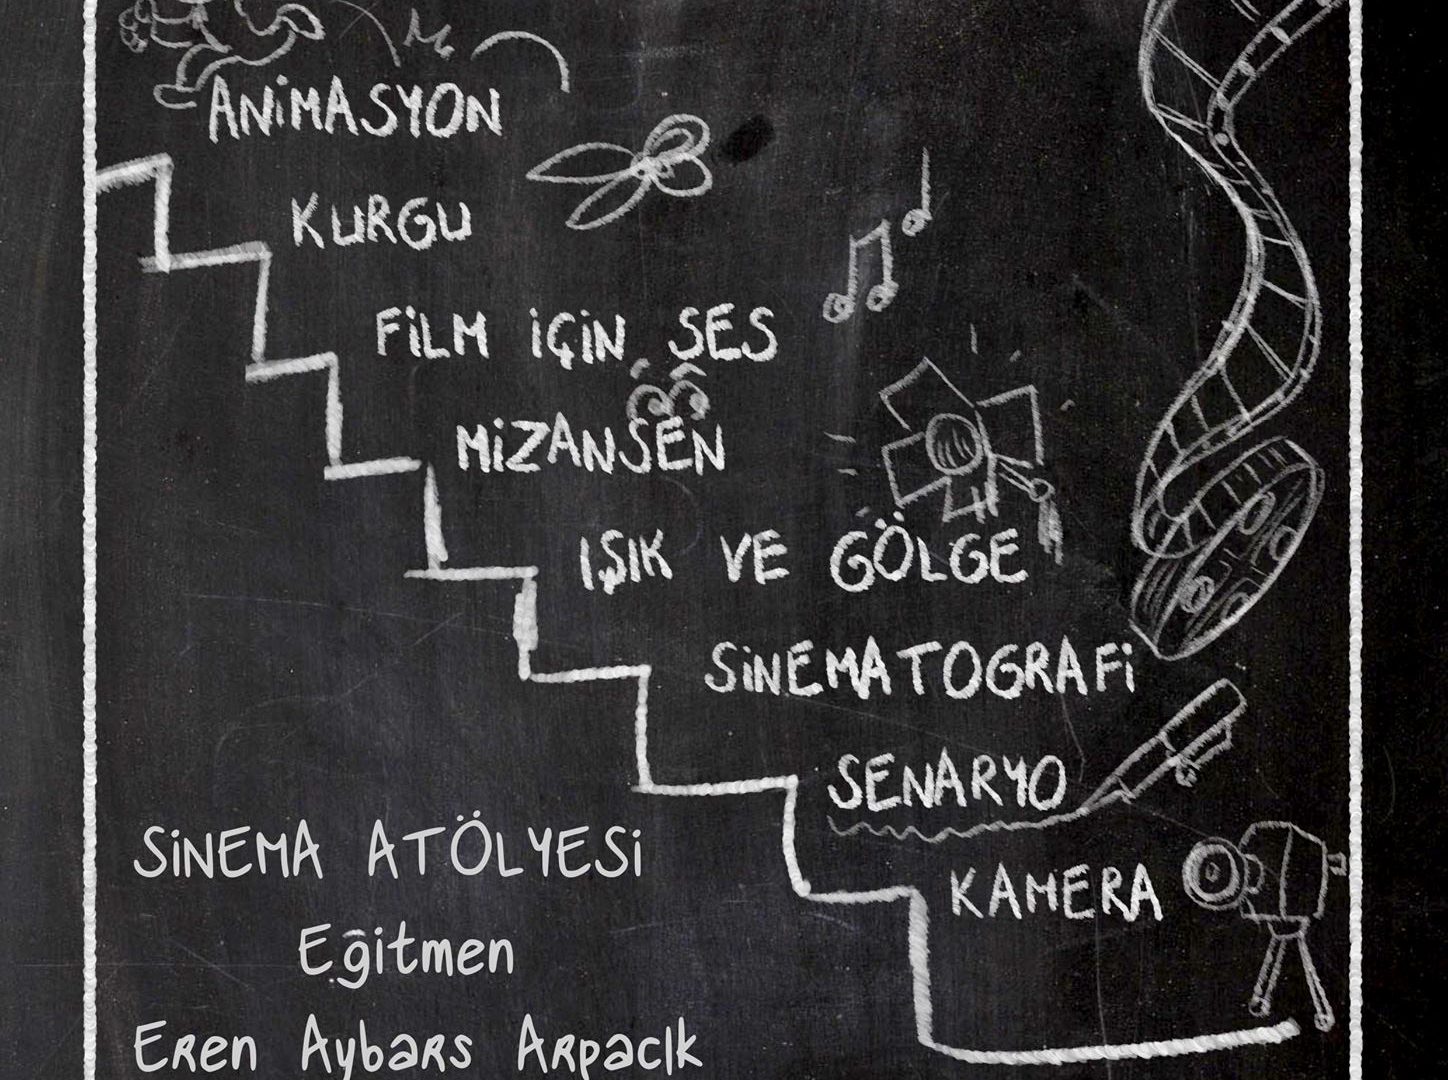 ANİMASYON
KURGU
FİLM İÇİN SES
MİZANSEN
IŞIK VE GÖLGE
SİNEMATOGRAFİ
SENARYO
KAMERA
SİNEMA ATÖLYESİ
Eğitmen
Eren Aybars Arpacık